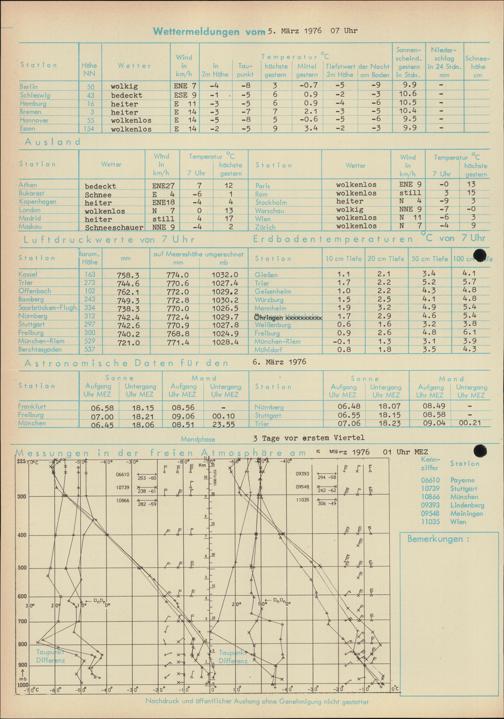 Wettermeldungen vom 5. März 1976 07 Uhr
Station Höhe NN Wetter Wind in km/h Temperatur °C Sonnen-scheind. gestern in Stdn. Nieder-schlag in 24 Stdn. mm Schnee-höhe cm
in 2m Höhe Tau-punkt höchste gestern Mittel gestern Tiefstwert der Nacht 2m Höhe am Boden
Berlin 50 wolkig ENE 7 -4 -8 3 -0.7 -5 -9 9.9 -
Schleswig 43 bedeckt ESE 9 -1 -5 6 0.9 -2 -3 10.6 -
Hamburg 16 heiter E 11 -3 -5 6 0.9 -4 -6 10.5 -
Bremen 3 heiter E 14 -3 -7 7 2.1 -3 -5 10.4 -
Hannover 55 wolkenlos E 14 -5 -8 5 -0.6 -5 -6 9.5 -
Essen 154 wolkenlos E 14 -2 -5 9 3.4 -2 -3 9.9 -
Ausland
Station Wetter Wind in km/h Temperatur °C 7 Uhr höchste gestern Station Wetter Wind in km/h Temperatur °C 7 Uhr höchste gestern
Athen bedeckt ENE27 7 12 Paris wolkenlos ENE 9 -0 13
Bukarest Schnee E 4 -6 1 Rom wolkenlos still 3 15
Kopenhagen heiter ENE18 -4 4 Stockholm heiter N 4 -9 3
London wolkenlos N 7 0 13 Warschau wolkig NNE 9 -7 -0
Madrid heiter still 4 17 Wien wolkenlos N 11 -6 3
Moskau Schneeschauer NNE 9 -4 2 Zürich wolkenlos N 7 -4 9
Luftdruckwerte von 7 Uhr Erdbodentemperaturen °C von 7 Uhr
Station barom. Höhe mm auf Meereshöhe umgerechnet mm mb Station 10 cm Tiefe 20 cm Tiefe 50 cm Tiefe 100 cm
Kassel 163 758.3 774.0 1032.0 Gießen 1.1 2.1 3.4 4.1
Trier 273 744.6 770.6 1027.4 Trier 1.7 2.2 5.2 5.7
Offenbach 102 762.1 772.0 1029.2 Geisenheim 1.0 2.2 4.3 4.8
Bamberg 243 749.3 772.8 1030.2 Würzburg 1.5 2.5 4.1 4.8
Saarbrücken-Flugh. 334 738.3 770.0 1026.5 Mannheim 1.9 3.2 4.9 5.4
Nürnberg 312 742.4 772.4 1029.7 Öhringen xxxxxxxxxx 1.7 2.9 4.6 5.4
Stuttgart 297 742.6 770.9 1027.8 Weißenburg 0.6 1.6 3.2 3.8
Freiburg 300 740.2 768.8 1024.9 Freiburg 0.9 2.6 4.8 6.1
München-Riem 529 721.0 771.4 1028.4 München-Riem -0.1 1.3 3.1 3.9
Berchtesgaden 537 Mühldorf 0.8 1.8 3.5 4.3
Astronomische Daten für den 6. März 1976
Station Sonne Aufgang Uhr MEZ Untergang Uhr MEZ Mond Aufgang Uhr MEZ Untergang Uhr MEZ Station Sonne Aufgang Uhr MEZ Untergang Uhr MEZ Mond Aufgang Uhr MEZ Untergang Uhr MEZ
Frankfurt 06.58 18.15 08.56 - Nürnberg 06.48 18.07 08.49 -
Freiburg 07.00 18.21 09.06 00.10 Stuttgart 06.55 18.15 08.58 -
München 06.45 18.06 08.51 23.55 Trier 07.06 18.23 09.04 00.21
Mondphase 3 Tage vor erstem Viertel
Messungen in der freien Atmosphäre am 1976 01 Uhr MEZ
Kenn-ziffer Station
06610 Payerne
10739 Stuttgart
10866 München
09393 Lindenberg
09548 Meiningen
11035 Wien
Bemerkungen:
06610
10739
10866
09393
09548
11035
300
400
500
600
700
800
900
1000
Taupunkt Differenz
Taupunkt Differenz
Nachdruck und öffentlicher Aushang ohne Genehmigung nicht gestattet